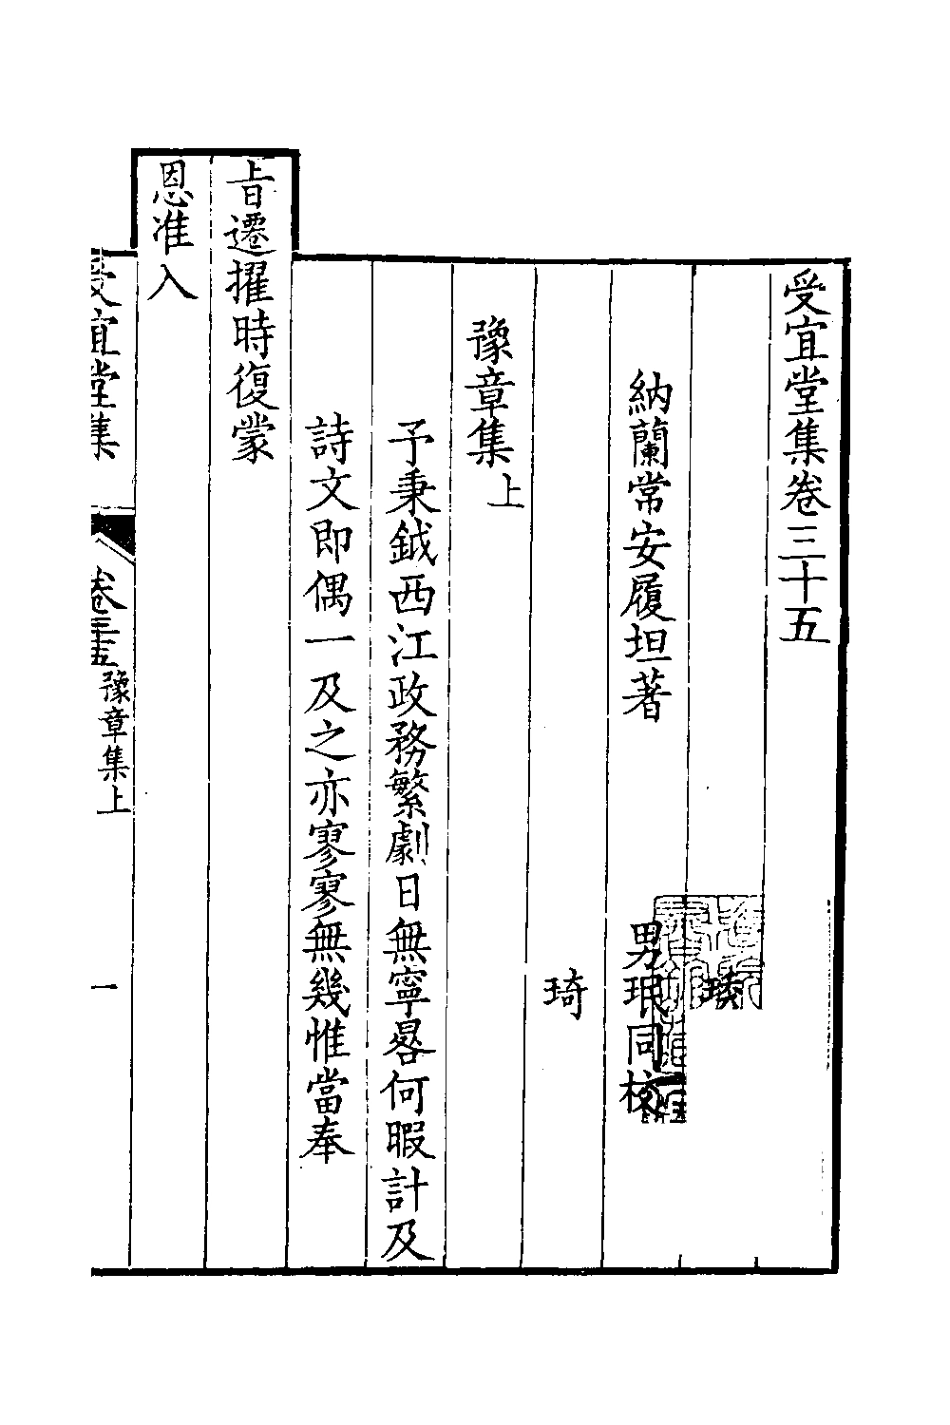 受宜堂集卷三十五
瑓
納蘭常安履坦著　男珉同校
琦
豫章集上
予秉鉞西江政務繁劇日無寧晷何暇計及
詩文即偶一及之亦寥寥無幾惟當奉
旨遷擢時復蒙
恩准入
受宜堂集　卷三十五　豫章集上　一